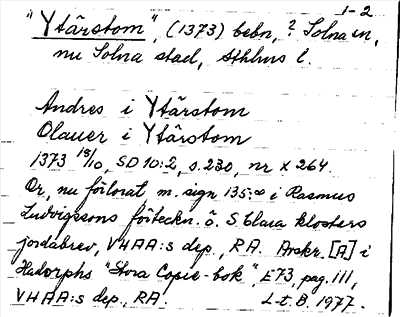 1-2
"Ytärstom", (1373) bebn, ? Solna sn,
nu Solna stad, Sthlms l.
Andres i Ytärstom
Olauer i Ytärstom
1373 18/10, SD 10:2, s. 230, nr X 264.
Or, nu förlorat m. sign 135:∞ i Rasmus
Ludvigssons förteckn. ö. S. Clara klosters
jordabrev, VHAA:s dep., RA. Avskr. [A] i
Hadorphs "Stora Copie-bok", E73, pag. 111,
VHAA:s dep., RA. L-t. B. 1977.